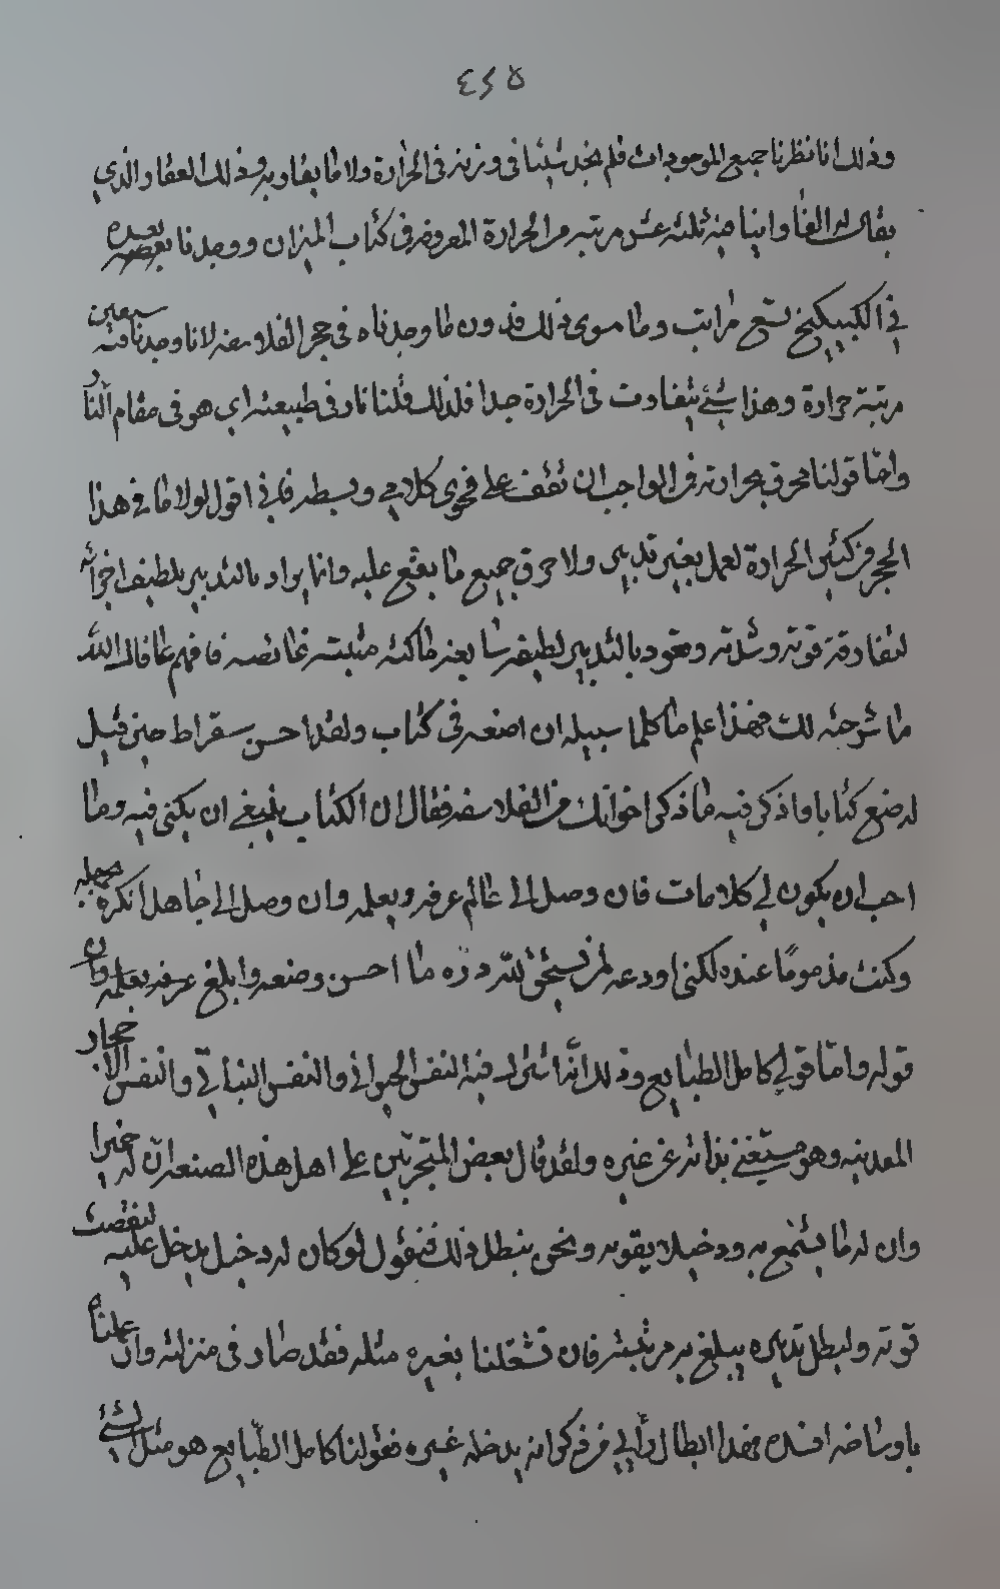 ٤٢٥
وذلك انا نظرنا جميع الموجودات فلم نجد شيئا في وزنه في الحرارة ولا ما يقاربه وذلك العقار الذي
يقال له الفا واينا فيه ثلثة عشر مرتبه من الحرارة المعروفه في كتاب الميزان ووجدنا بعده
في الكبيكيج تسع مراتب وما سوى ذلك فدون ما وجدناه في حجر الفلاسفه لانا وجدنا فيه سبعين
مرتبة حرارة وهذا شئ يتفاوت في الحرارة جدا فلذلك قلنا نار في طبيعته اي هو في مقام النار
وامّا قولنا محرق بحرارته فمن الواجب ان تقف على فحوى كلامي وبسطه فاني اقول اولا ما في هذا
الحجر من كثير الحرارة لعمل بغير تدبير ولا حرق جميع ما يقع عليه وانما يراد بالتدبير بلطيف اجزائه
لتفارقه قوته وشدته وتعود بالتدبير لطيفه شايعه ماكنه مثبته غايصه فافهم عافاك الله
ما شرحته لك فهذا علم ما كلما سبيله ان اضعه في كتاب ولقد احسن سقراط حين قيل
له ضع كتابا واذكر فيه ما ذكر اخوانك من الفلاسفه فقال ان الكتاب ينبغي ان يكنى فيه وما
احب ان يكون لي كلامات فان وصل الى عالم عرفه وبعلمه وان وصل الى جاهل انكره بجهله
وكنت مذموما عنده لكني اودعه لمن يستحق لله دره ما احسن وضعه وابلغ عرفه بعلمه وان
قوله وامّا قولي كامل الطبايع وذلك انّه اشترك فيه النفس الحيواني والنفس النباتيّ والنفس الاحجار
المعدنيه وهو مستغني بذاته عن غيره ولقد قال بعض المتجربين على اهل هذه الصنعه انّ له خيرا
وان له ما يستمع به ودخيلا يقويه ونحن نبطل ذلك فنقول لو كان له دخيل يدخل عليه لنقصت
قوته ولبطل تدبيره يبلغ به مرتبته فان تشغلنا بغيره مثله فقد صار في منزلته وان علمناه
باوساخه افسده فهذا ابطال رأي من ذكر انه يدخله غيره فقولنا كامل الطبايع هو مثل الشئ